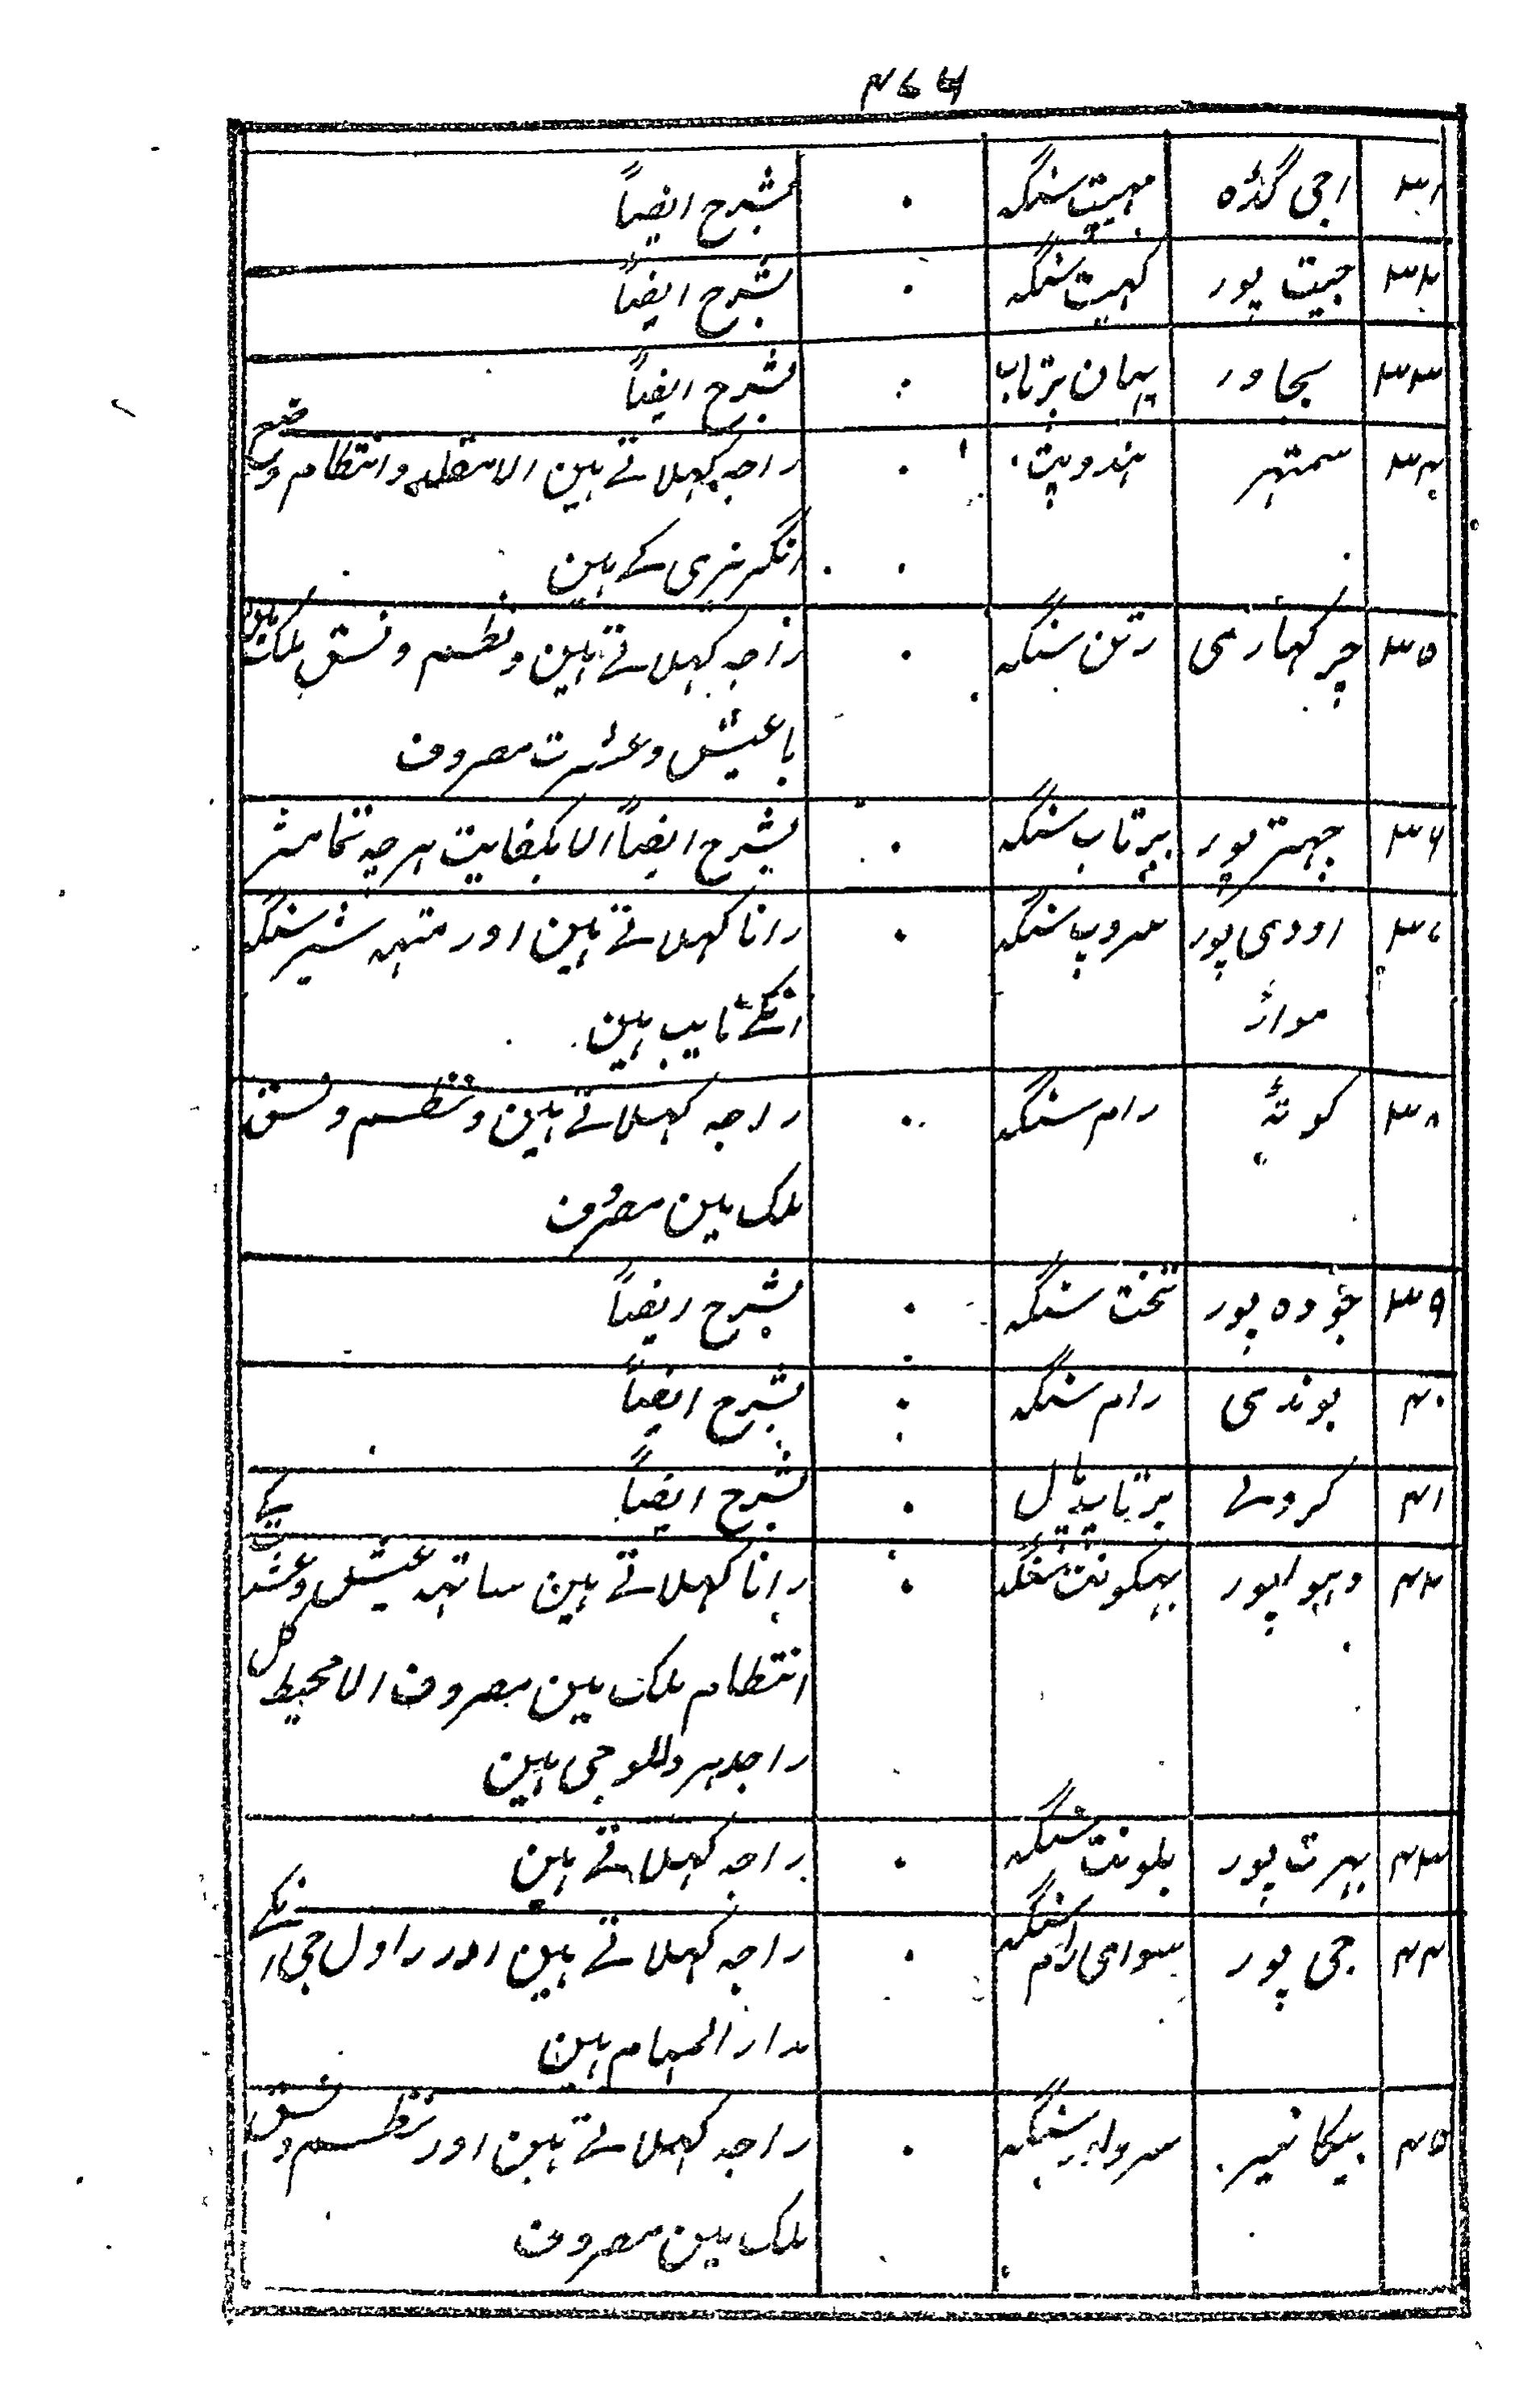 ۴۷۶
۳۱ اجی گڈہ مہیپت سنگہ ۰ بشرح ایضاً
۳۲ جیت پور کہیت سنگہ ۰ بشرح ایضاً
۳۳ بجاور بہان پرتاب ۰ بشرح ایضاً
۳۴ سمتہر ہندوپت ۰ راجہ کہلاتے ہین الا متعلقہ وانتظام وضع
انگریزی کے ہین
۳۵ چرکہاری رتن سنگہ ۰ راجہ کہلاتے ہین ونظم ونسق ملک مین
باعیش وعشرت مصروف
۳۶ چہترپور پرتاب سنگہ ۰ بشرح ایضاً الا بکفایت ہرچہ تمامتر
۳۷ اودی پور سروپ سنگہ ۰ رانا کہلاتے ہین اور شیر سنگہ
مواڑ انکے نایب ہین
۳۸ کوٹہ رام سنگہ ۰ راجہ کہلاتے ہین ونظم ونسق
ملک مین مصروف
۳۹ جودہ پور تخت سنگہ ۰ بشرح ایضاً
۴۰ بوندی رام سنگہ ۰ بشرح ایضاً
۴۱ کرولے پرتاب پال ۰ بشرح ایضاً
۴۲ دہولپور بہگونت سنگہ ۰ رانا کہلاتے ہین ساتہہ عیش وعشرت کے
انتظام ملک مین مصروف الا محیط کل
راجہ ہین
۴۳ بہرت پور بلونت سنگہ ۰ راجہ کہلاتے ہین
۴۴ جی پور سوای رام سنگہ ۰ راجہ کہلاتے ہین اور راول جی انکے
مدار المہام ہین
۴۵ بیکانیر سردار سنگہ ۰ راجہ کہلاتے ہین اور نظم ونسق
ملک مین مصروف